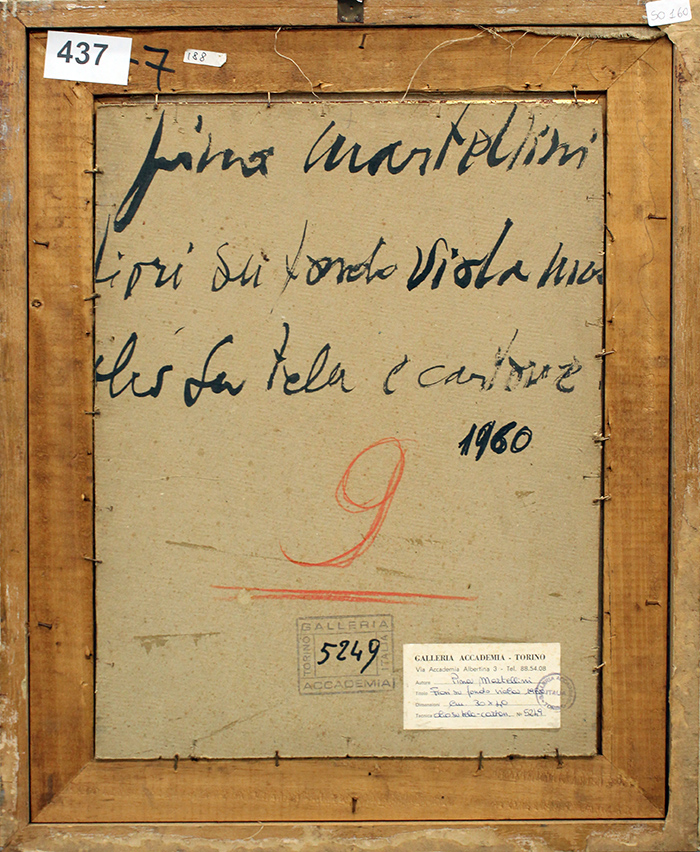 437
-7
188
SO 160
pino martellini
fiori su fondo viola
olio su tela e cartone
1960
9
GALLERIA
TORINO
5249
ITALIA
ACCADEMIA
GALLERIA ACCADEMIA - TORINO
Via Accademia Albertina 3 - Tel. 88.54.08
Autore Pino Martellini
Titolo Fiori su fondo viola 1960
Dimensioni cm 30 x 40
Tecnica olio su tela-carton N. 5249